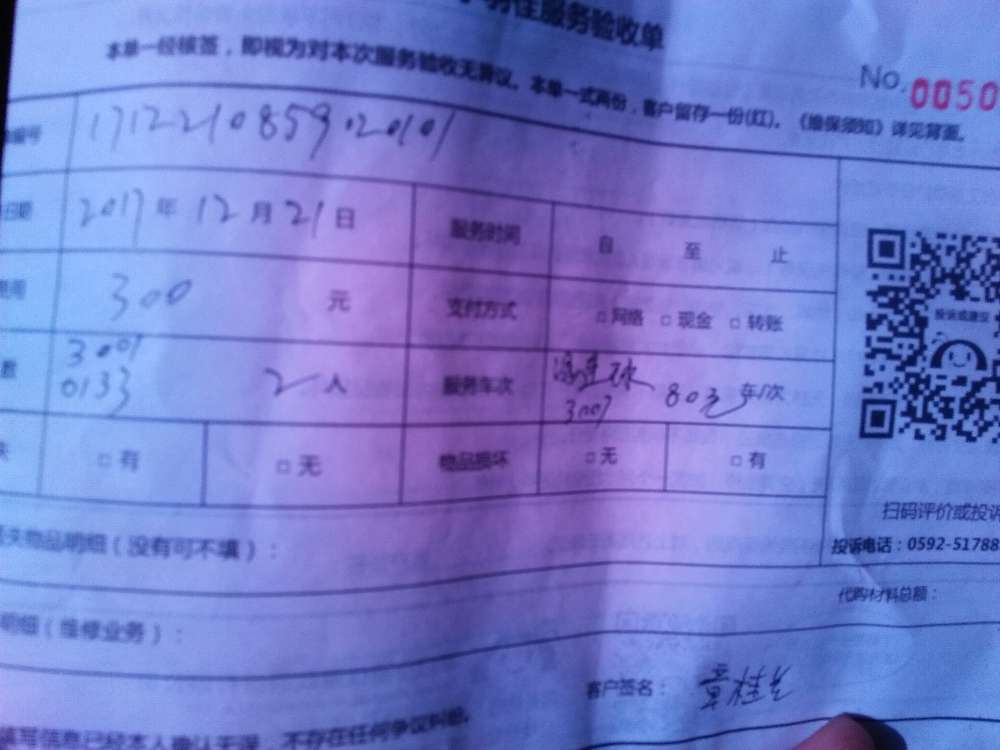 居住服务验收单
本单一经核签，即视为对本次服务验收无异议。本单一式两份，客户留存一份(红)。《维保须知》详见背面。
No. 0050
编号 171221085920101
日期 2017年12月21日 服务时间 自 至 止
费用 300 元 支付方式 □网络 □现金 □转账
数 3007 0133 2人 服务车次 3007 80元 车/次
□有 □无 物品损坏 □无 □有
投诉或建议
扫码评价或投诉
投诉电话：0592-51788
物品明细（没有可不填）：
代购材料总额：
明细（维修业务）：
客户签名：
填写信息已经本人确认无误，不存在任何争议纠纷。